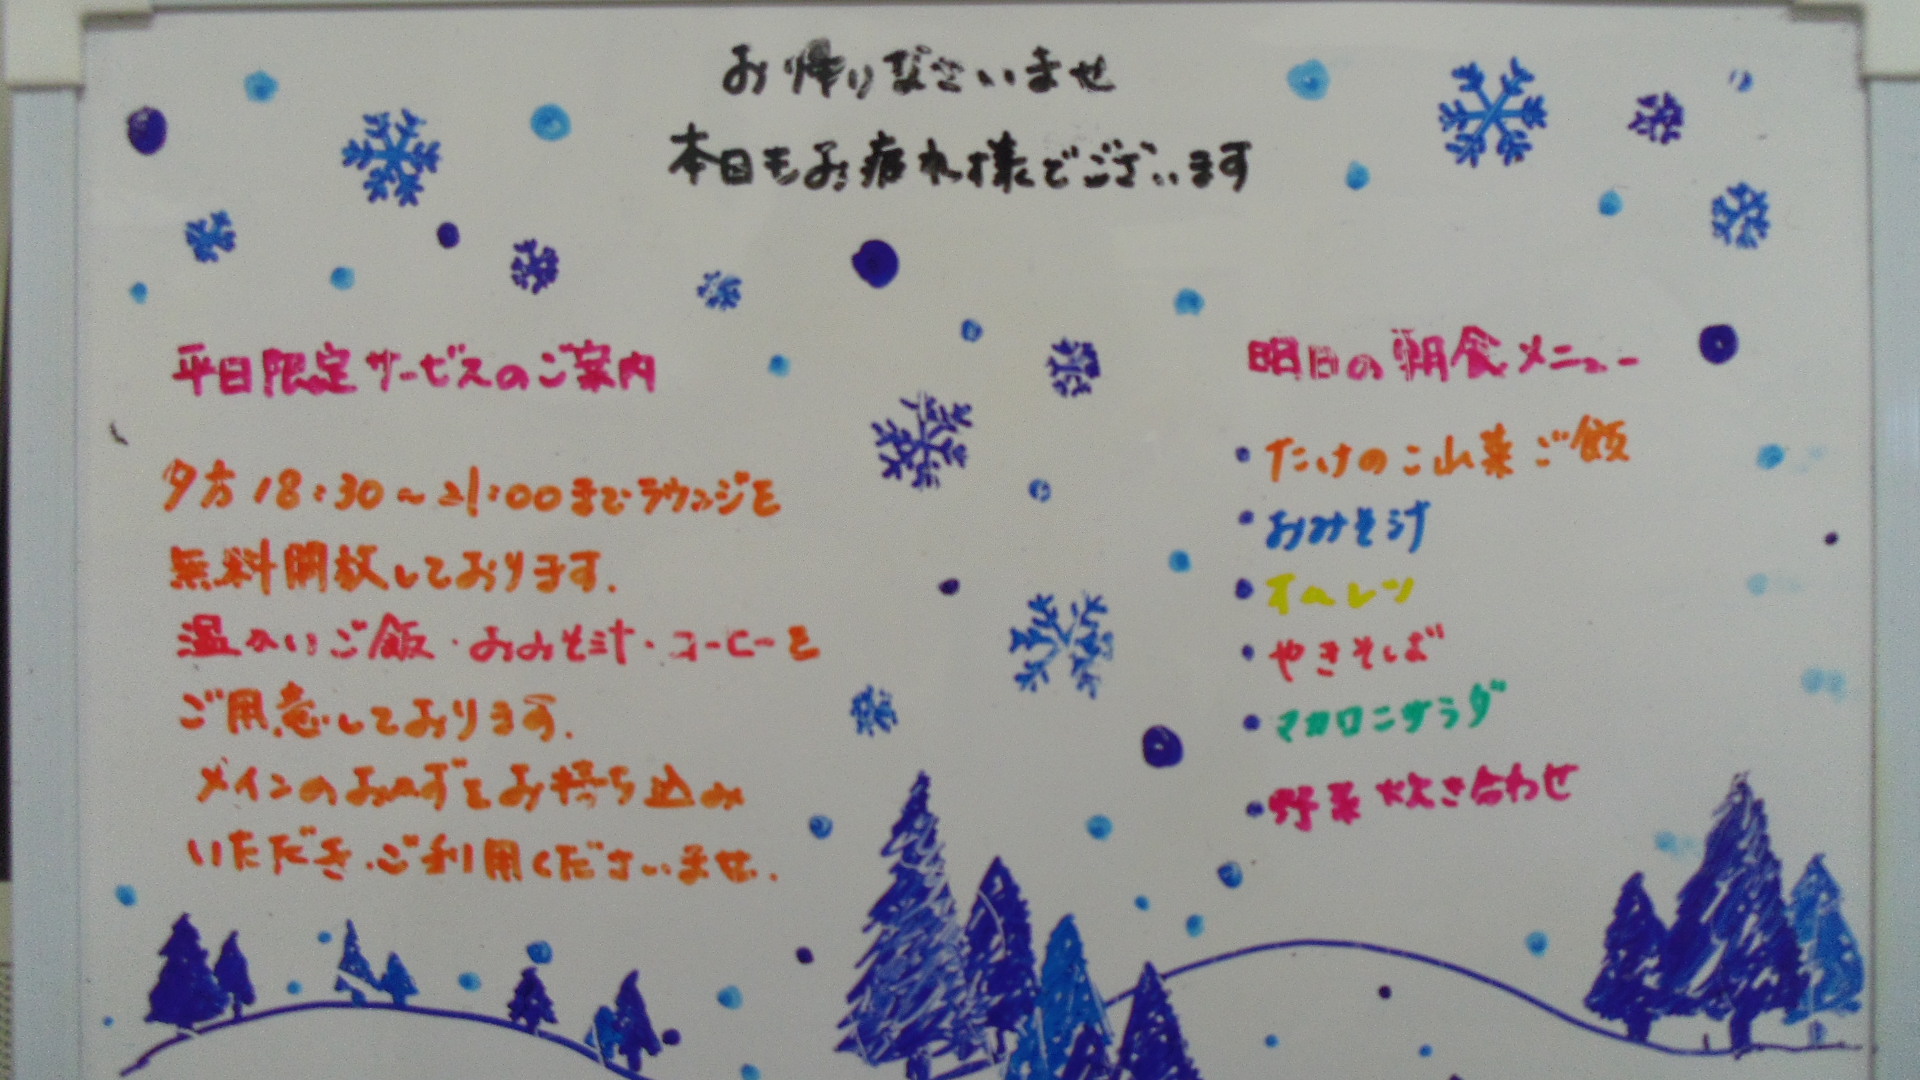 お帰りなさいませ
本日もお疲れ様でございます
平日限定サービスのご案内
夕方18:30～21:00までラウンジを
無料開放しております.
温かいご飯・おみそ汁・コーヒーを
ご用意しております.
メインのおかずをお持ち込み
いただき、ご利用くださいませ.
明日の朝食メニュー
・たけのこ山菜ご飯
・おみそ汁
・オムレツ
・やきそば
・マカロニサラダ
・野菜炊き合わせ